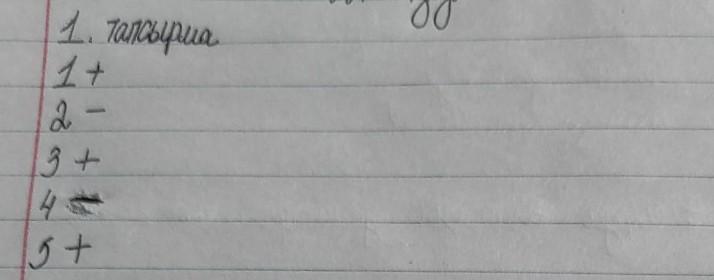 1. тапсырма
1 +
2 -
3 +
4 -
5 +